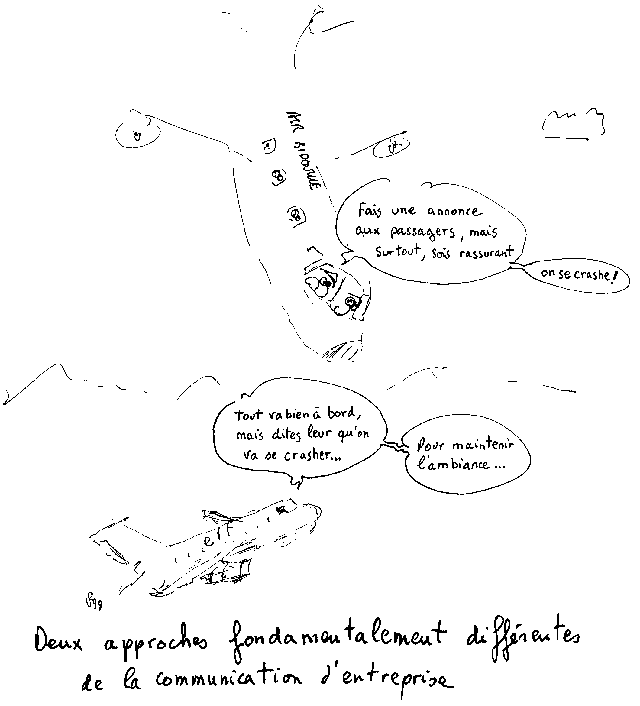 AIR BIDOUILLE
Fais une annonce
aux passagers, mais
surtout, sois rassurant
on se crashe!
tout va bien à bord,
mais dites leur qu'on
va se crasher...
Pour maintenir
l'ambiance...
elf
Deux approches fondamentalement différentes
de la communication d'entreprise